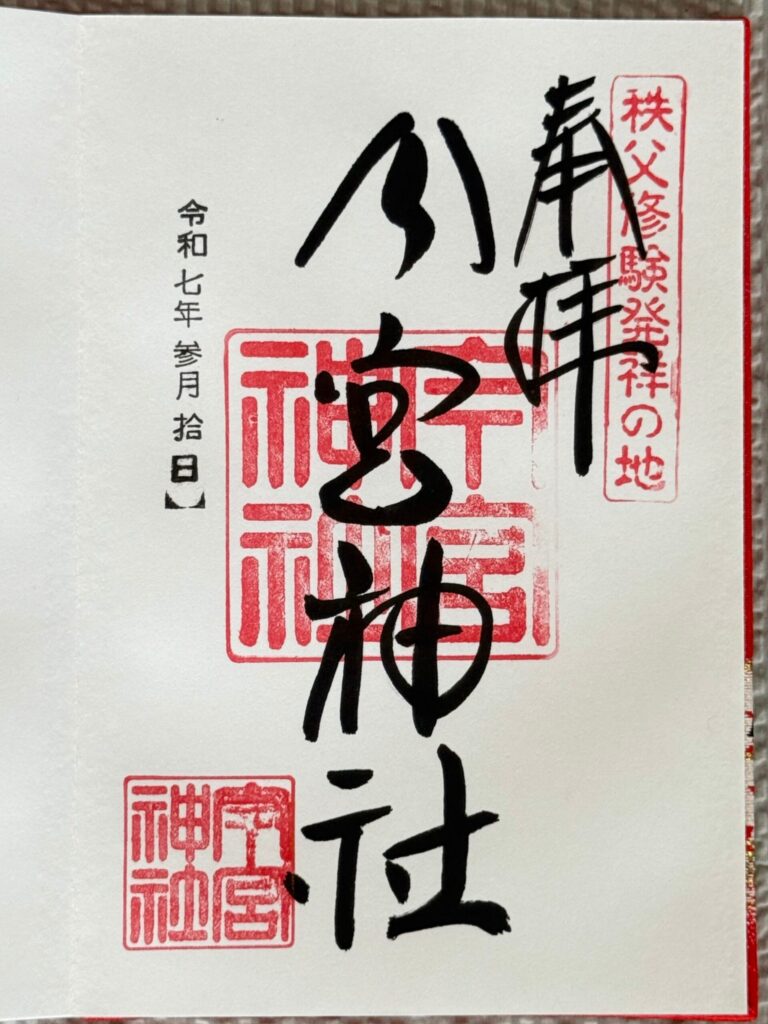 秩父修験発祥の地
奉拝
今宮神社
今宮神社
令和七年参月拾日
今宮神社